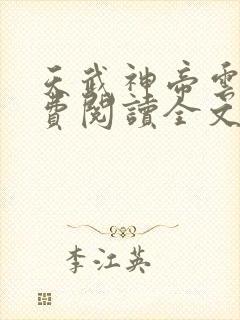 天武神帝雲
費閱讀全文
李江英